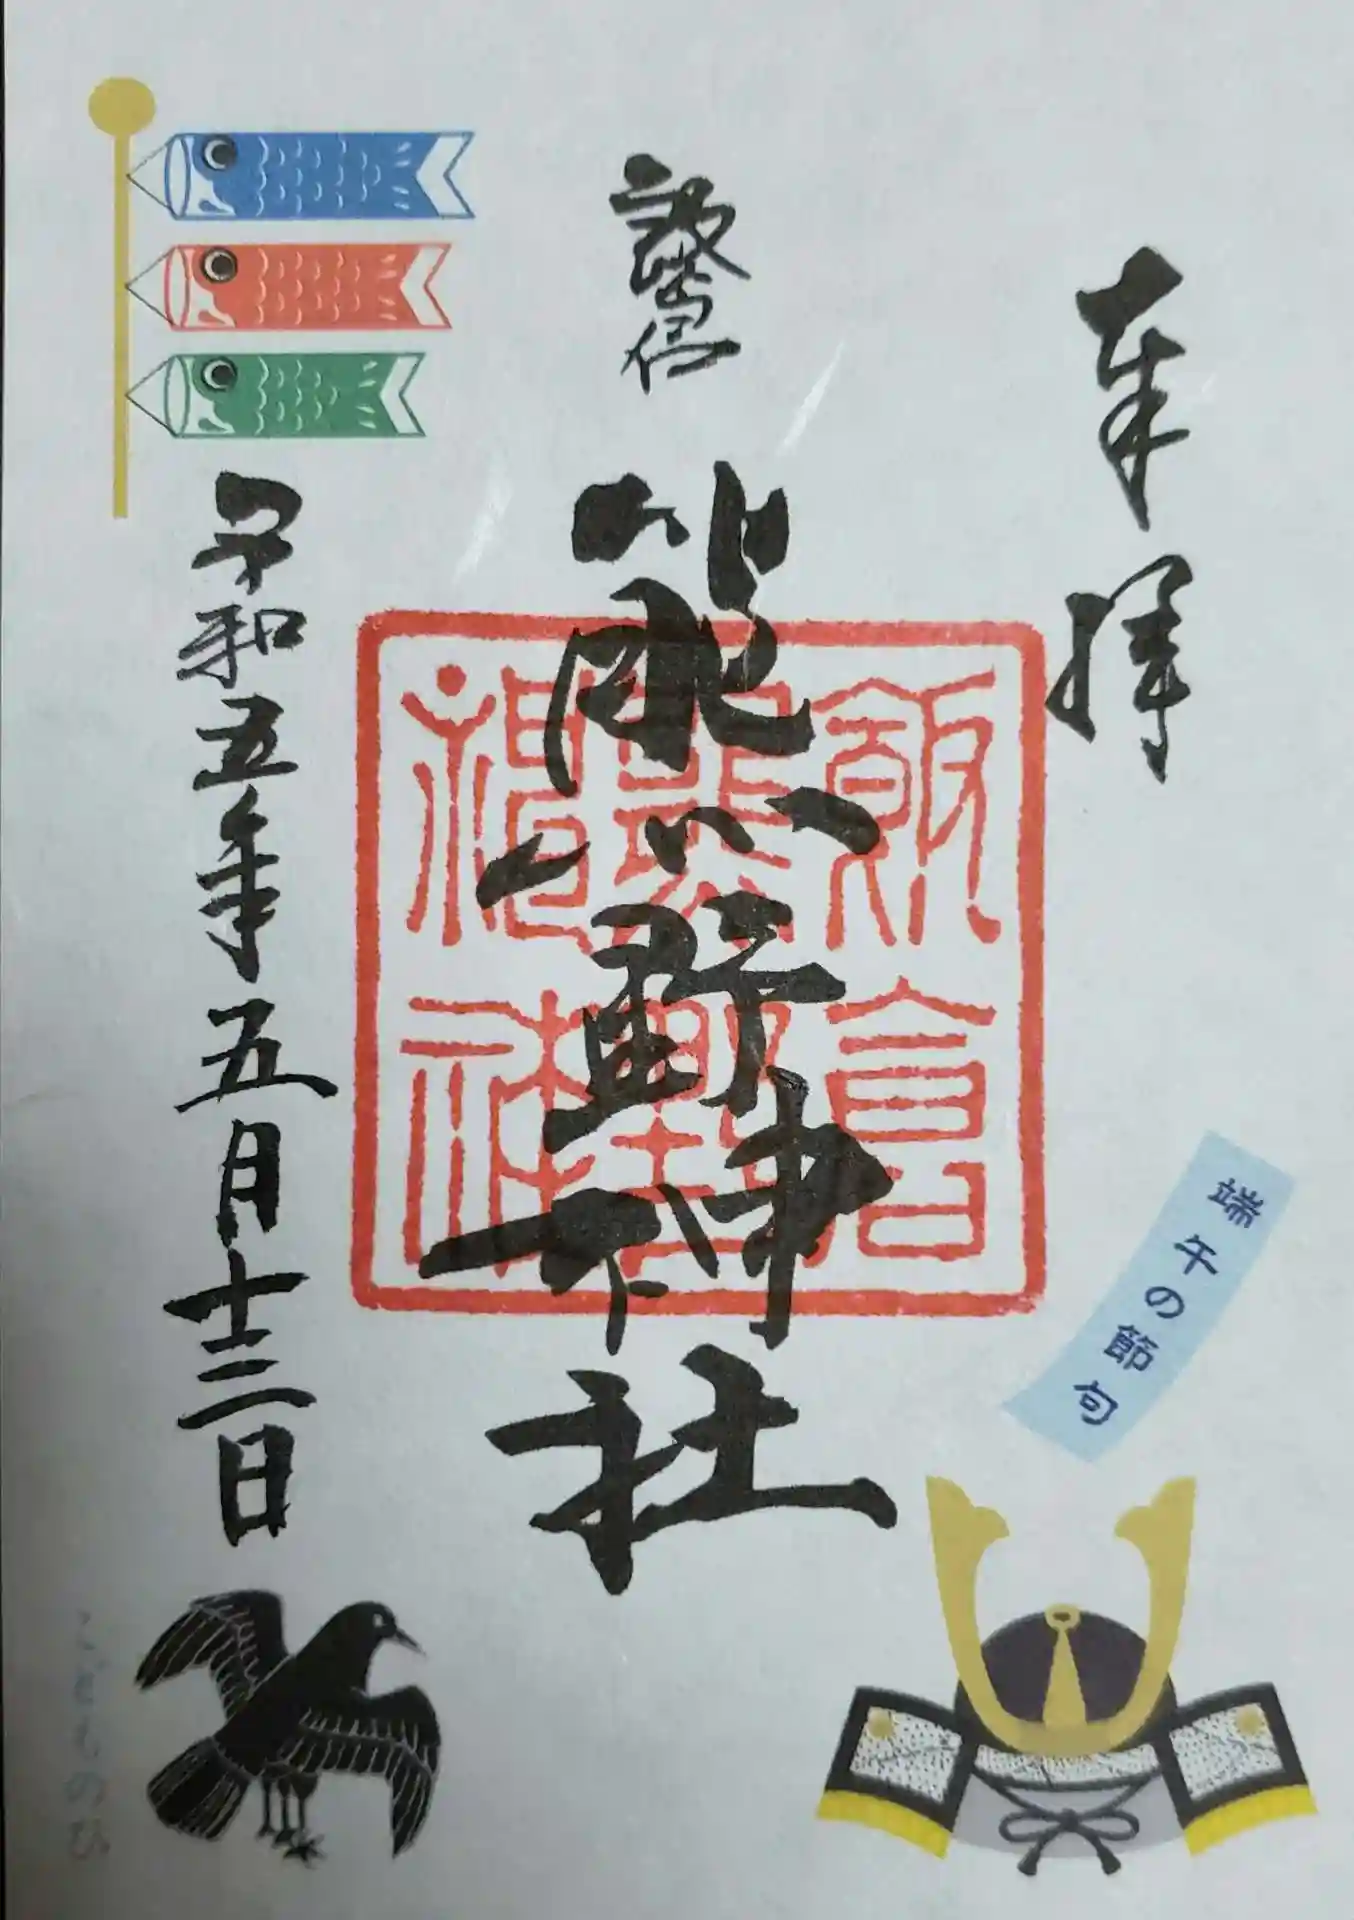 奉拝
熊野神社
飯倉
熊野
神社
令和五年五月十三日
端午の節句
こどものひ